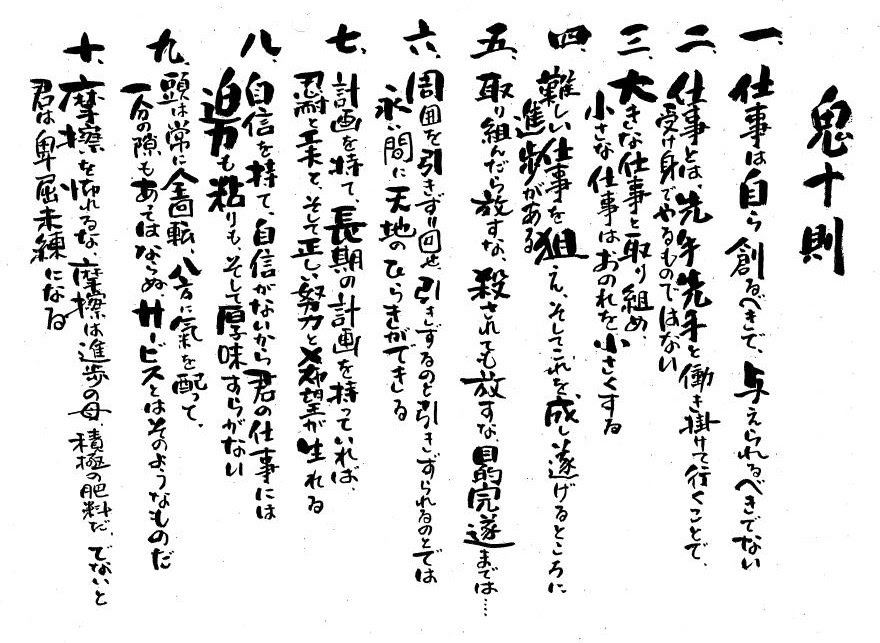 鬼十則
一、仕事は自ら創るべきで、与えられるべきでない
二、仕事とは、先手先手と働き掛けて行くことで、
受け身でやるものではない
三、大きな仕事と取り組め、
小さな仕事はおのれを小さくする
四、難しい仕事を狙え、そしてこれを成し遂げるところに
進歩がある
五、取り組んだら放すな、殺されても放すな、目的完遂までは……
六、周囲を引きずり回せ、引きずるのと引きずられるのとでは
永い間に天地のひらきができる
七、計画を持て、長期の計画を持っていれば、
忍耐と工夫と、そして正しい努力と希望が生れる
八、自信を持て、自信がないから君の仕事には
迫力も粘りも、そして厚味すらがない
九、頭は常に全回転、八方に氣を配って、
一分の隙もあってはならぬ、サービスとはそのようなものだ
十、摩擦を怖れるな、摩擦は進歩の母、積極の肥料だ、でないと
君は卑屈未練になる